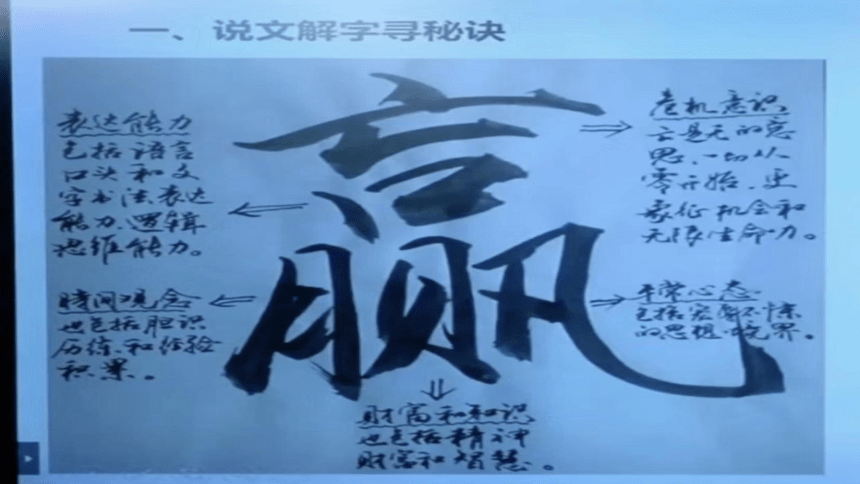 一、说文解字寻秘诀
赢
表达能力
包括语言
口头和文
字书法、表达
能力、逻辑
思维能力。
危机意识
亡是无的意
思、一切从
零开始、更
象征机会和
无限生命力。
時间观念
也包括胆识
历练、和经验
积累。
平常心态
包括宠辱不惊
的思想境界。
财富和知识
也包括精神
财富和智慧。